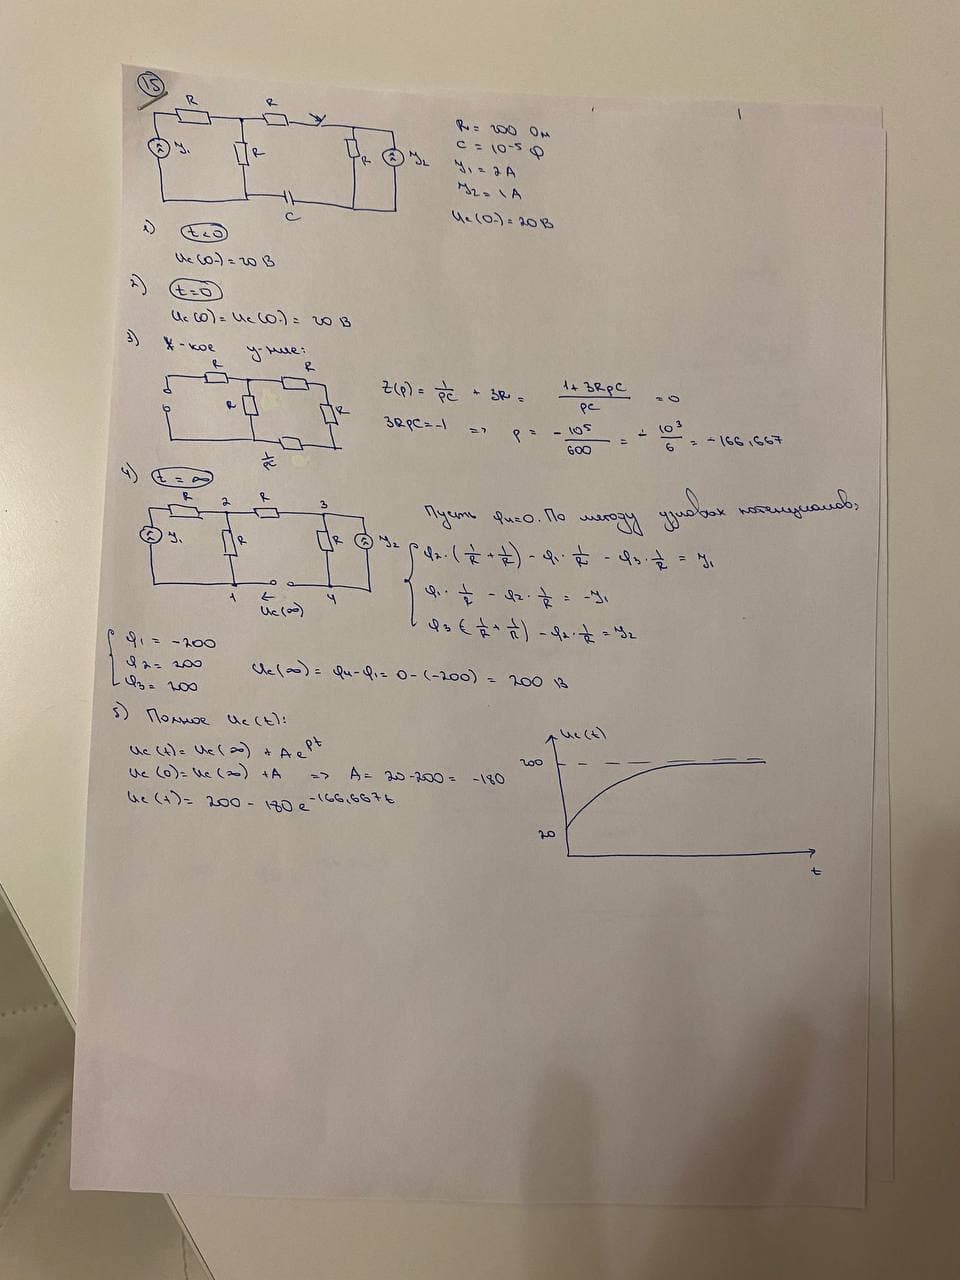 15
R R
J₁ R R J₂
C
R = 200 Ом
C = 10⁻⁵ Ф
J₁ = 2A
J₂ = 1A
Uc(0-) = 20 В
1) t<0
Uc(0-) = 20 В
2) t=0
Uc(0) = Uc(0-) = 20 В
3) Х-кое у-ние:
R R
R R
1/pC
Z(p) = 1/pC + 3R = (1+3RpC)/pC = 0
3RpC = -1 => p = -10⁵/600 = -10³/6 = -166,667
4) t = ∞
R 2 R 3
J₁ R R J₂
1 ← 4
Uc(∞)
Пусть φ₄=0. По методу узловых потенциалов:
φ₂·(1/R + 1/R) - φ₁·1/R - φ₃·1/R = J₁
φ₁·1/R - φ₂·1/R = -J₁
φ₃(1/R + 1/R) - φ₂·1/R = J₂
φ₁ = -200
φ₂ = 200
φ₃ = 200
Uc(∞) = φ₄-φ₁ = 0-(-200) = 200 В
5) Полное Uc(t):
Uc(t) = Uc(∞) + Ae^pt
Uc(0) = Uc(∞) + A => A = 20-200 = -180
Uc(t) = 200 - 180e^-166,667t
Uc(t)
200
20
t